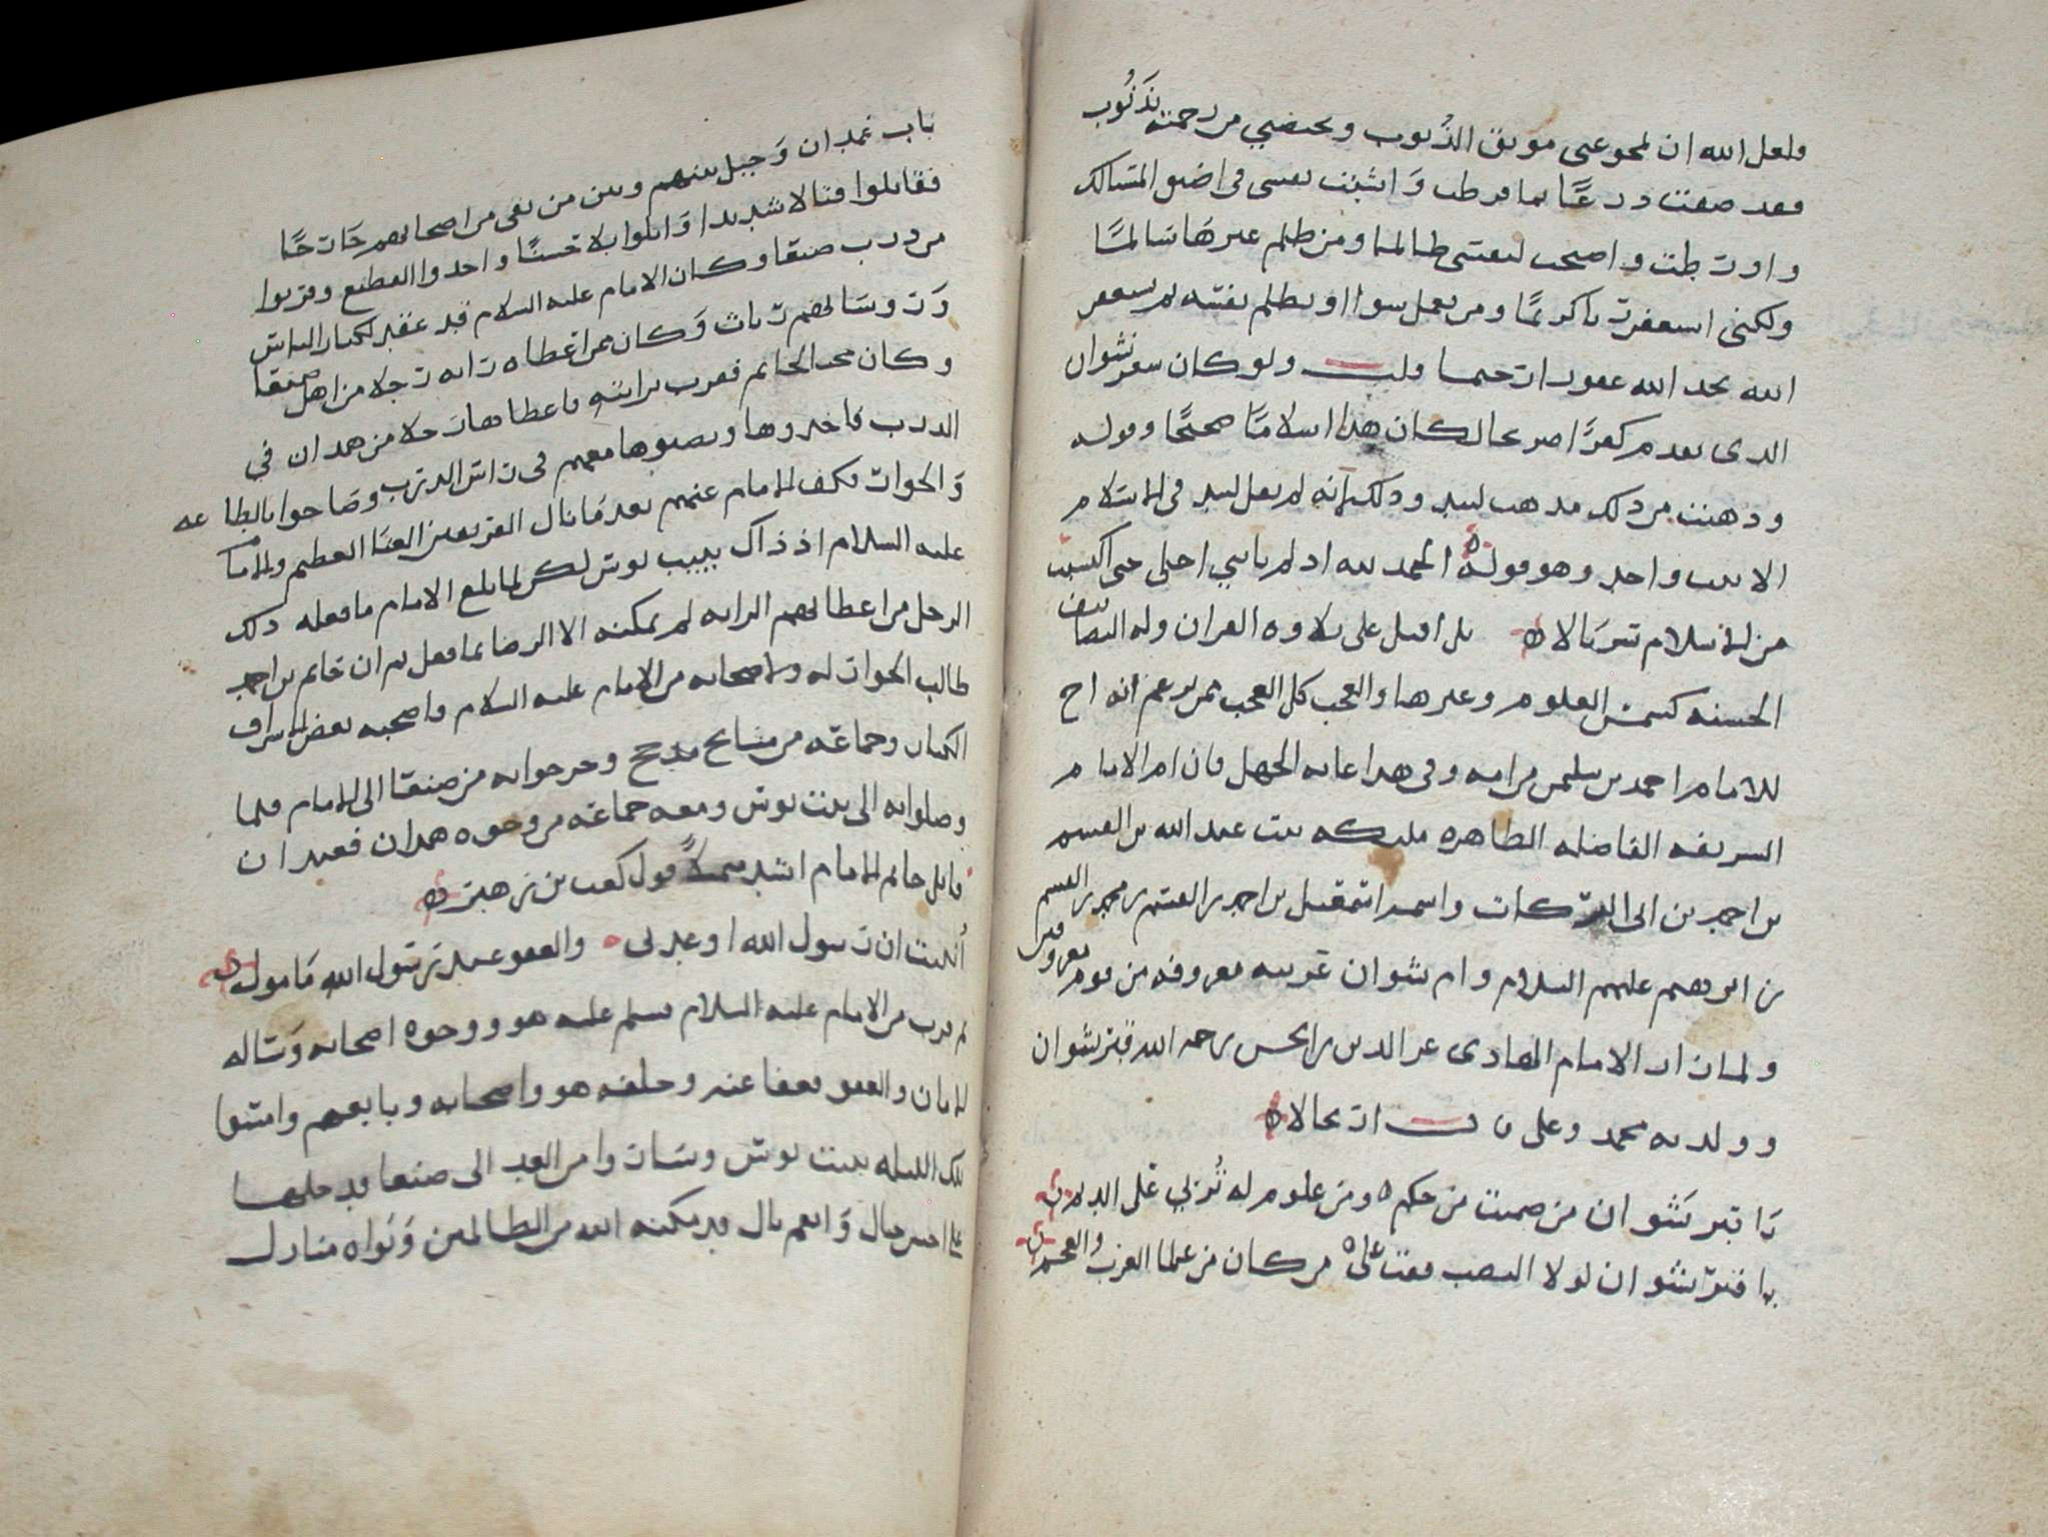 ولعل الله ان يمحو عني موبق الذنوب ويخصني من رحمته بذنوب
فقد ضقت درعًا بما فرطت وانشبت نفسي في اضيق المسالك
واورطت واصبحت لنفسي ظالما ومن ظلم غيرها سالمًا
ولكني استغفرت باكر ومن يعمل سوا او يظلم نفسه ثم يستغفر
الله يجد الله غفورا رحيما قلت ولو كان شعر نشوان
الذي تقدم كفرًا صريحا لكان هذا اسلامًا صحيحًا وقوله
وذهبت من ذلك مذهب لبيد وذلك انه لم يقل لبيد في الاسلام
الا بيت واحد وهو قوله ه الحمد لله اذ لم ياتني اجلي حتى اكتسيت
من الاسلام سربالا ه بل اقبل على تلاوة القران وله التصانيف
الحسنه كشمس العلوم وغيرها والعجب كل العجب ممن يزعم انه اخ
للامام احمد بن سليمن من امه وفي هذا غايه الجهل فان ام الامام
الشريفه الفاضله الطاهره مليكه بنت عبد الله بن القسم
بن احمد بن ابي البركات واسمه اسمعيل بن احمد بن القسم بن محمد بن القسم
بن ابرهيم عليهم السلام وام نشوان غريبه معروفه من قوم معروفين
ولما زار الامام الهادي عز الدين بن الحسن رحمه الله قبر نشوان
وولديه محمد وعلي قال ارتجالا ه
يا قبر نشوان من ضمنت من حكم ه ومن علوم له تُربي على الديم
يا قبر نشوان لولا النصب فقت على ه من كان من علما العرب والعجم
باب غمدان وحيل بينهم وبين من بقي من اصحابهم خارجًا
فقاتلوا قتالا شديدا وابلوا بلا حسنًا واخذوا القطيع وقربوا
من درب صنعا وكان الامام عليه السلام قد عقد لكبار الناس
وروسا لهم رايات وكان ممن اعطاه رايه رجلا من اهل صنعا
وكان محب الحاتم فهرب برايته فاعطاها رجلا من همدان في
الدرب فاخذوها ونصبوها معهم في راس الدرب وصاحوا بالطاعه
والجوار فكف الامام عنهم بعد ما نال الفريقين العنا العظيم والامام
عليه السلام اذ ذاك ببيت بوس لكن لما بلغ الامام ما فعله ذلك
الرجل من اعطائهم الرايه لم يمكنه الا الرضا بما فعل ثم ان حاتم بن احمد
طالب الجوار له ولاصحابه من الامام عليه السلام فاصحبه بعض الاشراف
الكبار وجماعه من مشايخ مذحج وخرجوا به من صنعا الى الامام فلما
وصلوا به الى بيت بوس ومعه جماعه من وجوه همدان فعند ان
قابل حاتم الامام انشد متمثلاً قول كعب بن زهير ه
اُنبيت ان رسول الله اوعدني ه والعفو عند رسول الله مامول ه
ثم قرب من الامام عليه السلام فسلم عليه هو ووجوه اصحابه وساله
الامان والعفو فعفا عنه وحلفه هو واصحابه وبايعهم وامسوا
تلك الليله ببيت بوس وسار وا من الغد الى صنعا فدخلها
على احسن حال وانعم بال قد مكنه الله من الظالمين وبواه منازل